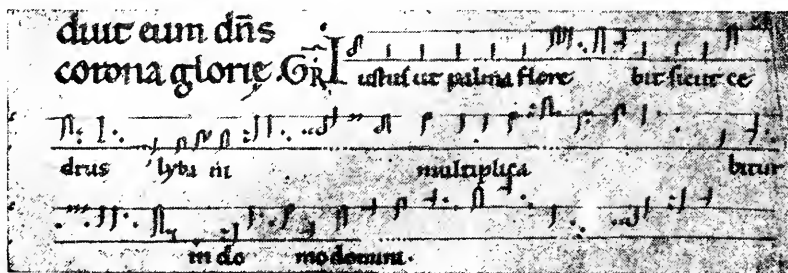 duit eum dñs
corona glorie. GR̃ Iustus ut palma flore bit sicut ce
drus lyba ni multiplica bitur
in do mo domini.